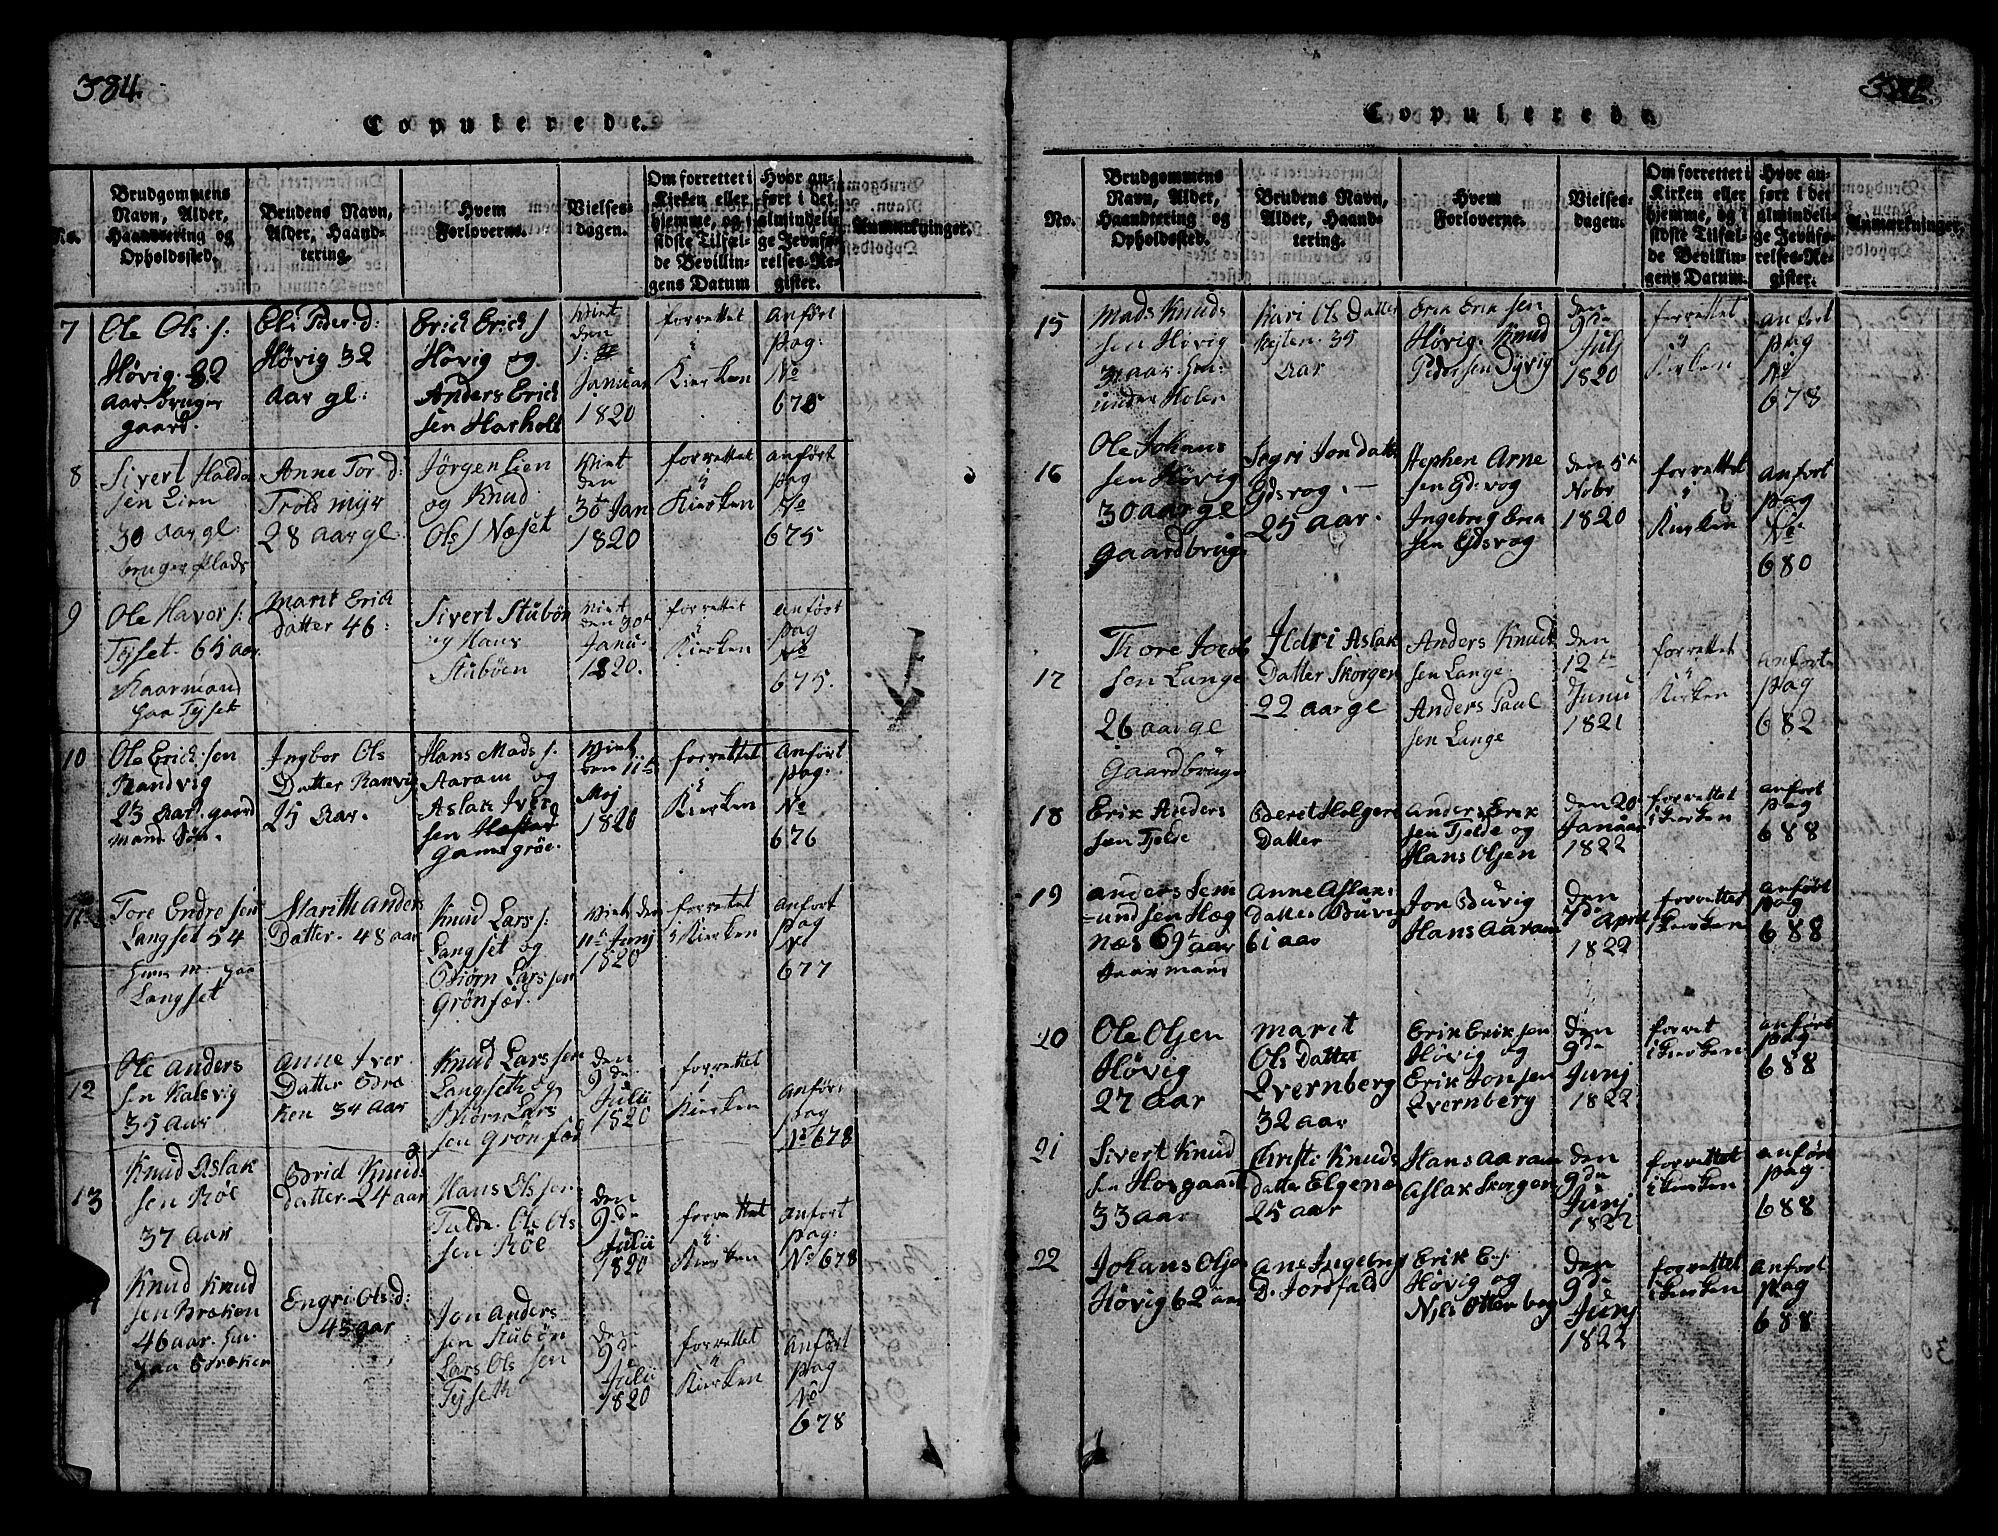 384.
Copulerede.
No.
Brudgommens Navn, Alder, Haandtering og Opholdssted.
Brudens Navn, Alder, Haandtering.
Hvem Forloverne.
Vielsesdagen.
Om forrettet i Kirken eller hjemme, og i sidste Tilfælde Bevillingens Datum
Hvor anført i det almindelige Jevnførelses-Register.
Anmærkninger.
7
Ole Ols. s:
Høvig. 32
Aar. bruger
gaard.
Eli Peder. d:
Høvig 32
Aar gl:
Erich Erich s
Høvig og
Anders Erich
sen Harholt
Viet
den
1:
Januar
1820
forrettet
i
Kierken
Anført
pag:
No
675
8
Sivert Haldor
sen Lien
30 Aar gl
bruger plads
Anne Tor. d:
Trold myr
28 aar gl.
Jörgen Lien
og Knud
Ols s Næset
Viet
den
30te Jan
1820
forrettet
i
Kierken
anført
pag
No
675
9
Ole Havor s:
Tøset 65 aar
Kaarmand
paa Tøset
Marit Erich
datter 46:
Sivert Stübön
og Hans
Stüböen
viet
den 30te
Janu.
1820.
forrettet
i
Kierken
anført
pag
No
675.
10
Ole Erich. sen
Randvig
23 Aar. gaard
mand Søn.
Ingbor Ols
Datter Ranvig
25 Aar.
Hans Mads s:
Aaram og
Aslak Iver
sen
Gamsgröe.
Viet
den 11te
Maj
1820
forrettet
i
Kierken
anført
pag:
No
676
11
Tore Endre sen
Langset 54
huus m. paa
Langset
Marith Anders
Datter. 48 aar
Knud Lars s:
Langset og
Biörn Lars sen
Grönfæd.
Viet den
11te Junj
1820
forrettet
i Kierken
anført
pag
No
677
12
Ole Anders
sen Kalsvig
35 aar
Anne Iver.
Datter Bræ
ken 34 Aar
Knud Lars sen
Langseth og
Biörn Lars
sen Grönfæd
Den
9.de
Julii
1820
forrettet
i
Kierken
Anført
pag
No 678
13
Knud Aslak
sen Röe
37 aar
Brid Knuds
datter. 24 aar
Hans Ols sen
Talde. Ole Ols
sen Röe
den
9.de
Julii
1820
forrettet
i
Kierken
Anført
pag:
No 678
Knud Knud
sen Bræken
46 aar.
paa Bræken
Engri Ols. d:
45 aar
Jon Anders
sen Stübön
Lars Ols sen
Tøseth
den
9.de
Julii
1820
forrettet
i
Kierken
Anført
pag
No
678
Copulerede
No.
Brudgommens Navn, Alder, Haandtering og Opholdssted.
Brudens Navn, Alder, Haandtering.
Hvem Forloverne.
Vielsesdagen.
Om forrettet i Kirken eller hjemme, og i sidste Tilfælde Bevillingens Datum.
Hvor anført i det almindelige Jevnførelses-Register.
Anmærkninger.
15
Mads Knuds
sen Høvig
Kari Ols Datter
35
Aar
Erik Erik sen
Høvig. Knud
Peder sen Dyrvig
den
9de
Julj
1820
forrettet
i
Kirken
anført
pag
No
678
16
Ole Johans
sen Høvig
30 aar gl
gaardbrug.
Segri Jon datter
Eidsvog. —
25 aar.
Stephen Arne
sen Eidsvog
Ingebrig Erik
sen Eidsvog
den 5te
Nobr
1820
forrettet
i
Kierken
anført
pag
No
680
17
Thore Jacob
sen Lange
26 aar gl
Gaardbruge
Ildri Aslak
Datter Skorgen
22 aar gl
Anders Knud
sen Lange.
Anders Paul
sen Lange
den
12te
Junii
1821
forrettet
i
Kirken
anført
pag
682
18
Erik Anders
sen Tjelde
Beret Holgers
Datter
anders Erik
sen Tjelde og
Hans Olsen
den 20
Januar
1822
forrettet
i kierken
anført
pag
688
19
anders Sem
undsen Hæg
næs 69 aar
kaarmand
anne Aslak:
datter Buvig
61 aar
Jon Buvig
Hans Aaram
den
7de April
1822
forrettet
i kierken
anført
pag
688
20
Ole Olsen
Høvig
27 aar
marit
Ols datter
Qvernberg
32 aar
Erik Erik sen
Høvig og
Erik Jonsen
Qvernberg
den
9de
Junj
1822
forret
i kierken
anført
pag
688
21
Sivert Knud
sen Horsgaard
33 aar
Christi Knuds
datter Elgenæs
25 aar
Hans Aaram
Aslak Skorgen
den
9de
Junj
1822
forrettet
i kierken
anført
pag
688
22
Johans Olsen
Høvig 62 aar
Ane Ingebrigs
D. Jordfald
Erik E.s.
Høvig og
Niels Otterberg
den
9de
Junj
1822
forrettet
i kierken
anført
pag
688